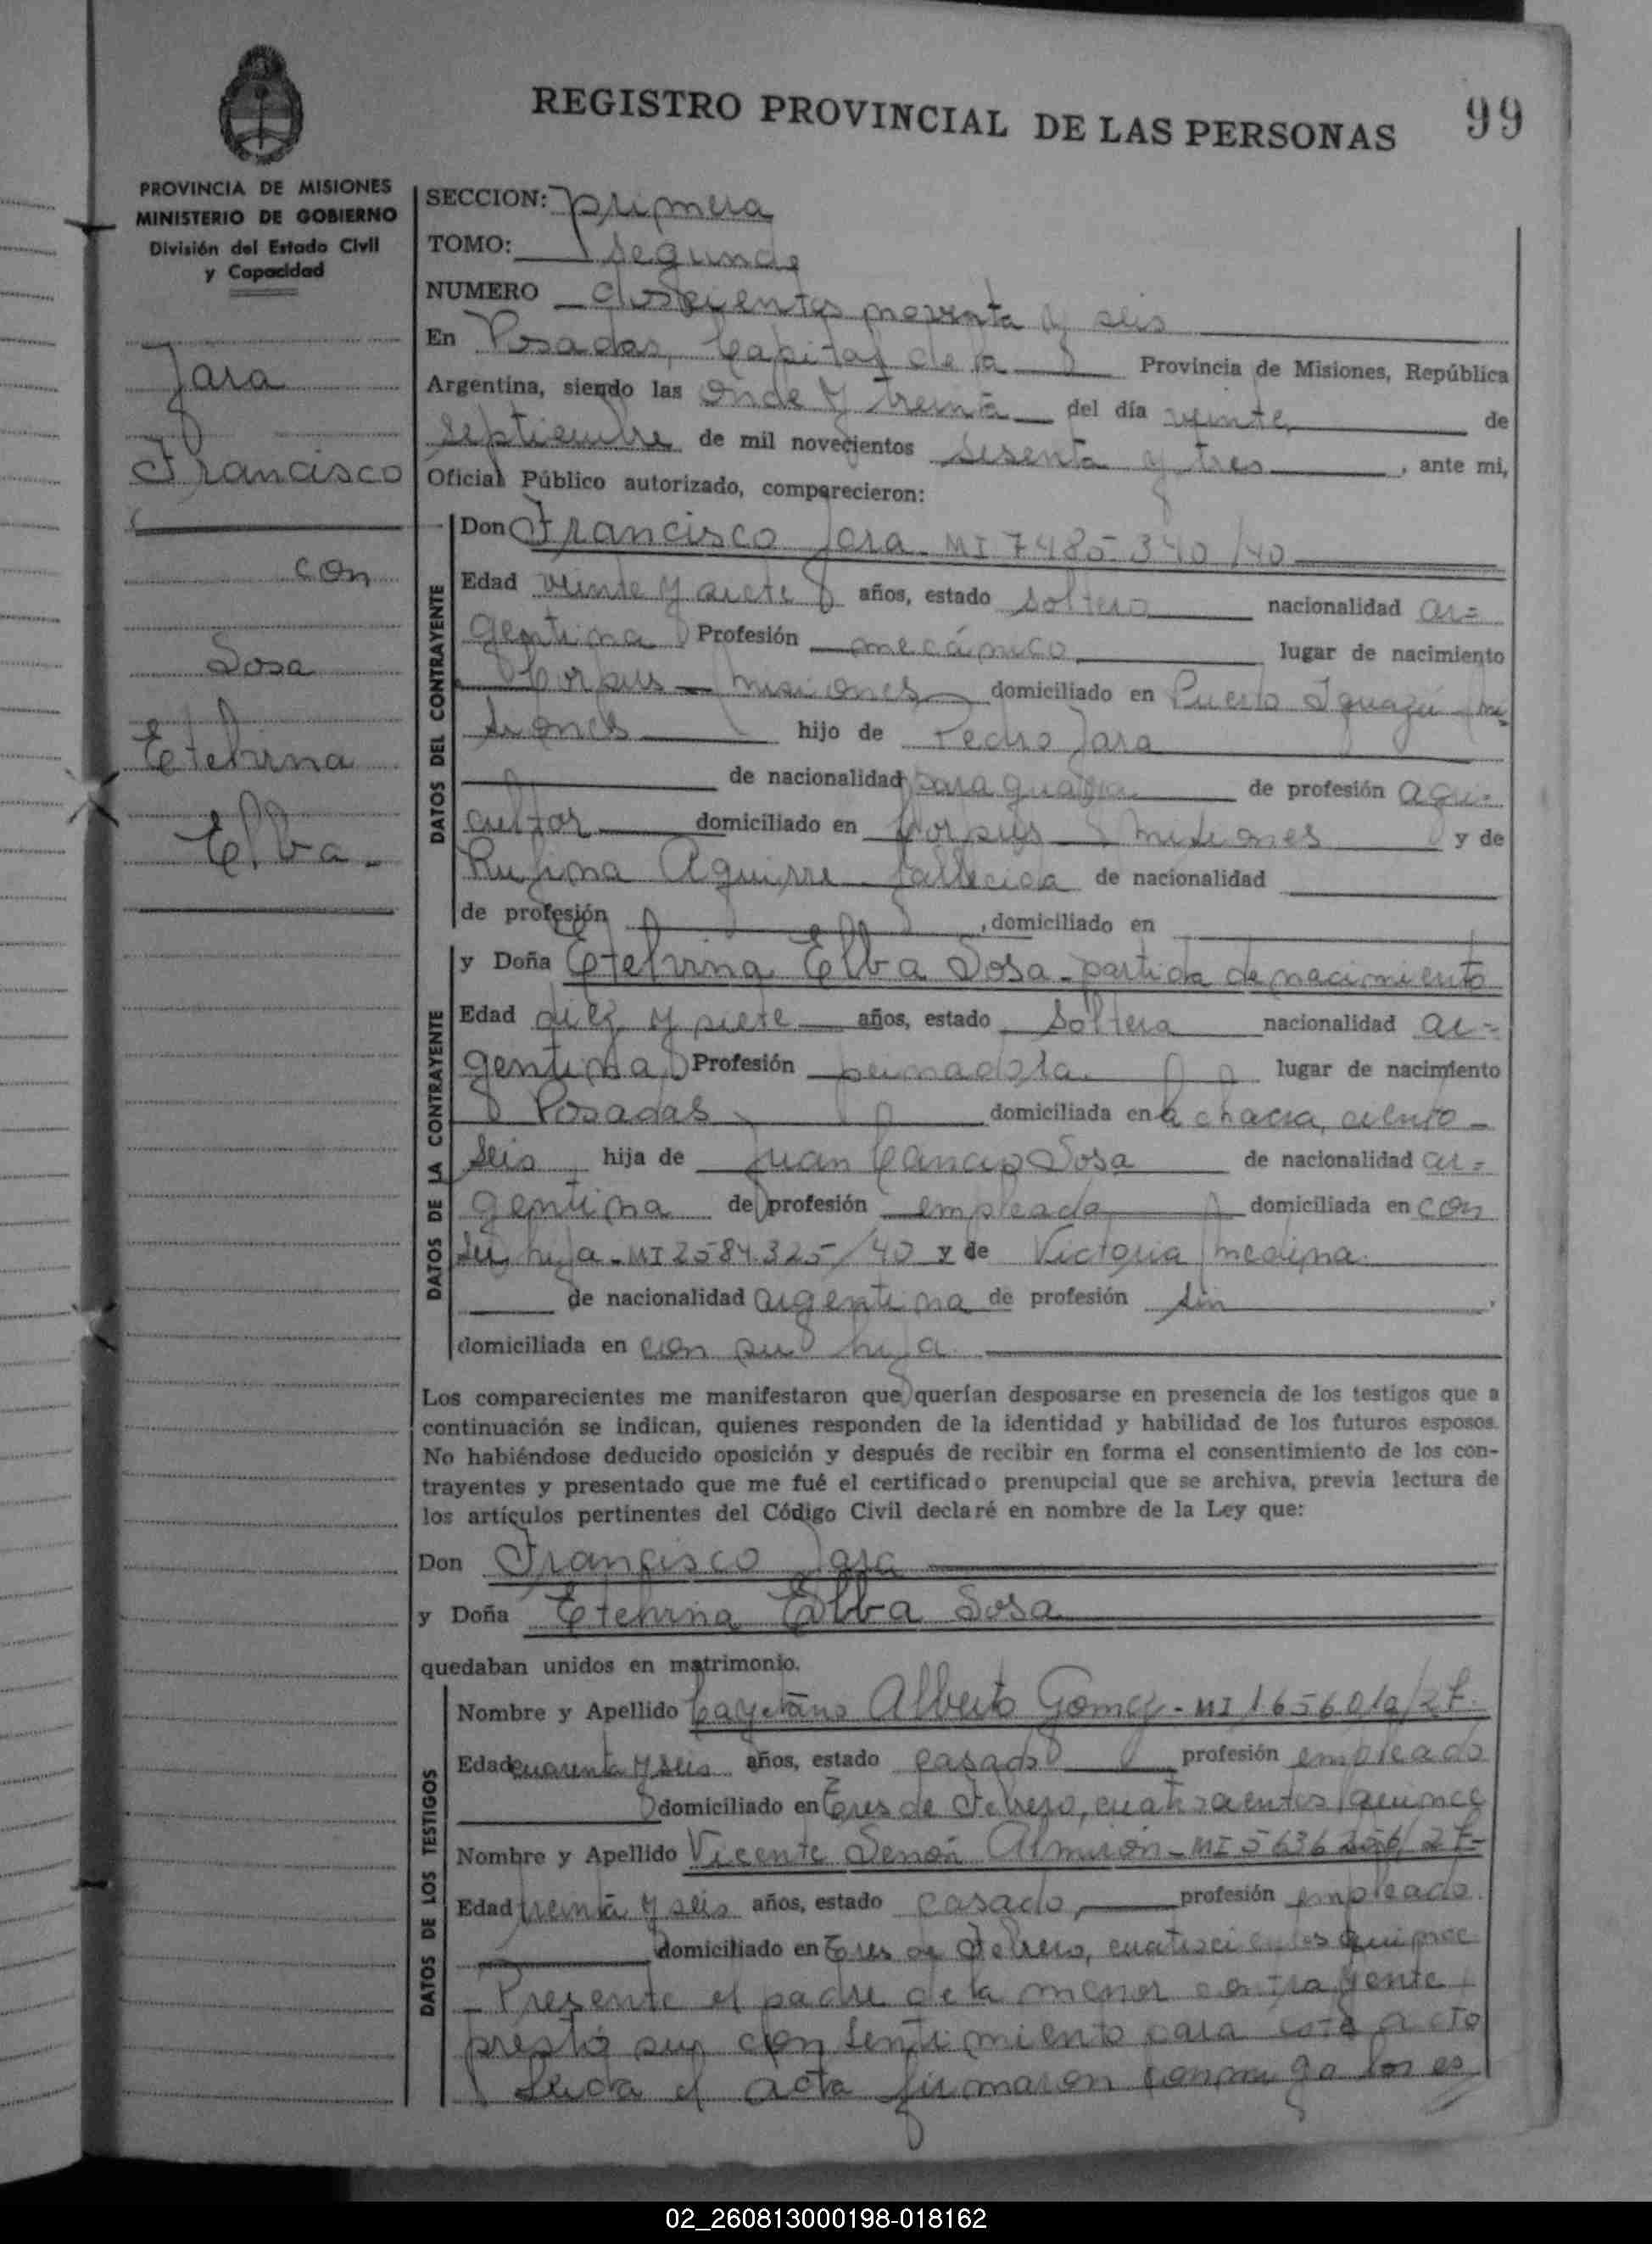 REGISTRO PROVINCIAL DE LAS PERSONAS 99
PROVINCIA DE MISIONES
MINISTERIO DE GOBIERNO
División del Estado Civil
y Capacidad
Jara
Francisco
con
Sosa
Etelvina
Elba-
SECCION: primera
TOMO: segundo
NUMERO doscientos noventa y seis
En Posadas, Capital de la Provincia de Misiones, República
Argentina, siendo las once y treinta del día veinte de
septiembre de mil novecientos sesenta y tres, ante mi,
Oficial Público autorizado, comparecieron:
DATOS DEL CONTRAYENTE
Don Francisco Jara - MI 7485.340/40
Edad veinte y siete años, estado soltero nacionalidad ar=
gentina Profesión mecánico lugar de nacimiento
Corpus - Misiones domiciliado en Puerto Iguazú - Mi
siones hijo de Pedro Jara
de nacionalidad paraguaya de profesión agri-
cultor domiciliado en Corpus - Misiones y de
Rufina Aguirre - fallecida de nacionalidad
de profesión , domiciliado en
DATOS DE LA CONTRAYENTE
y Doña Etelvina Elba Sosa - partida de nacimiento
Edad diez y siete años, estado soltera nacionalidad ar=
gentina Profesión peinadora lugar de nacimiento
Posadas domiciliada en la chacra, ciento
seis hija de Juan Cancio Sosa de nacionalidad ar=
gentina de profesión empleado domiciliada en con
su hija - MI 2584.325/40 y de Victoria Medina
de nacionalidad argentina de profesión sin
domiciliada en con su hija.
Los comparecientes me manifestaron que querían desposarse en presencia de los testigos que a
continuación se indican, quienes responden de la identidad y habilidad de los futuros esposos.
No habiéndose deducido oposición y después de recibir en forma el consentimiento de los con-
trayentes y presentado que me fué el certificado prenupcial que se archiva, previa lectura de
los artículos pertinentes del Código Civil declaré en nombre de la Ley que:
Don Francisco Jara
y Doña Etelvina Elba Sosa
quedaban unidos en matrimonio.
DATOS DE LOS TESTIGOS
Nombre y Apellido Cayetano Alberto Gomez - MI
Edad cuarenta y seis años, estado casado profesión empleado
domiciliado en Tres de Febrero, cuatrocientos quince
Nombre y Apellido Vicente Senón Almirón - MI
Edad treinta y seis años, estado casado, profesión empleado
domiciliado en Tres de Febrero, cuatrocientos quince
- Presente el padre de la menor contrayente
prestó su consentimiento para este acto
Leida el acta firmaron conmigo los es
02_260813000198-018162